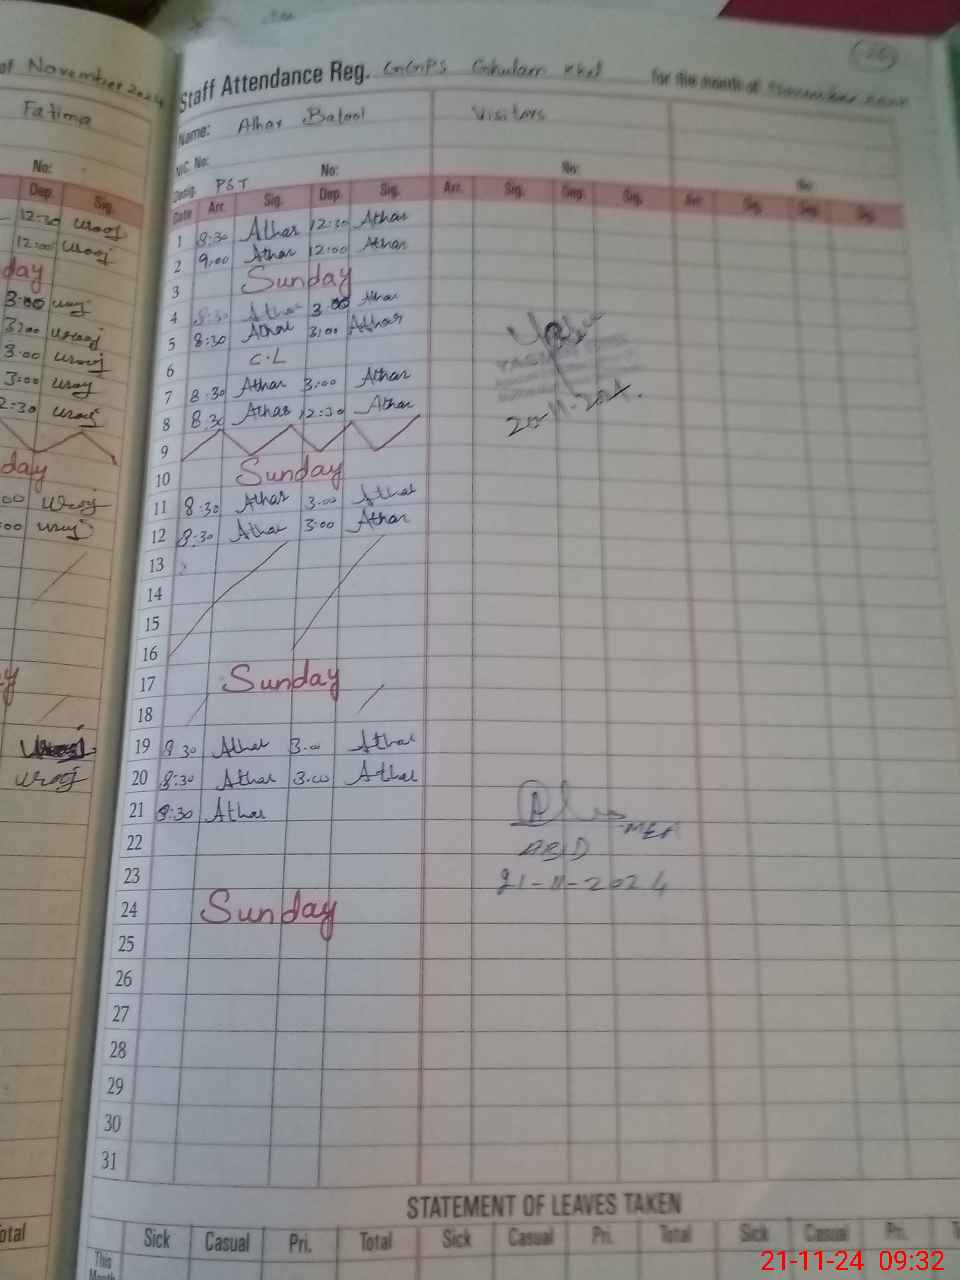 of November 2024
Fatima
No:
Dep. Sig.
12:30 urooj
12:00 urooj
day
3:00 urooj
3:00 urooj
3:00 urooj
3:00 urooj
2:30 urooj
day
00 urooj
00 urooj
y
urooj
otal
Staff Attendance Reg. GGPS Ghulam Khel for the month of November
Name: Athar Batool Visitors
N.I.C. No:
No: No: No:
Desig. PST
Date Arr. Sig. Dep. Sig. Arr. Sig. Dep. Sig. Arr. Sig. Dep. Sig.
1 8:30 Athar 12:30 Athar
2 9:00 Athar 12:00 Athar
3 Sunday
4 8:30 Athar 3:00 Athar
5 8:30 Athar 3:00 Athar
6 C.L
7 8:30 Athar 3:00 Athar
8 8:30 Athar 12:30 Athar
20-11-2024.
9
10 Sunday
11 8:30 Athar 3:00 Athar
12 8:30 Athar 3:00 Athar
13
14
15
16
17 Sunday
18
19 8:30 Athar 3:00 Athar
20 8:30 Athar 3:00 Athar
21 8:30 Athar
MEA
22
ABID
23
21-11-2024
24 Sunday
25
26
27
28
29
30
31
STATEMENT OF LEAVES TAKEN
Sick Casual Pri. Total Sick Casual Pri. Total Sick Casual Pri.
This
Month
21-11-24 09:32